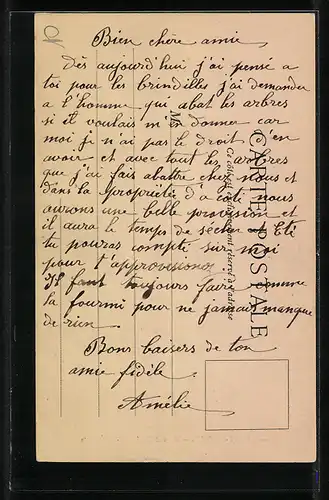 Bien chère amie
Dès aujourd'hui j'ai pensé a
toi pour les brindilles j'ai demander
a l'homme qui abat les arbres
si il voulais m'en donner car
moi je n'ai pas le droit d'en
avoir et avec tout les arbres
que j'ai fais abattre chez nous et
dans la propriété d'a coté nous
aurons une belle provision et
il aura le temps de sécher Eté
tu pouras compté sur moi
pour t'approvisionné
Il faut toujours faire comme
la fourmi pour ne jamais manque
de rien
Bons baisers de ton
amie fidèle
Amélie
CARTE POSTALE
Ce côté est exclusivement réservé à l'adresse
M